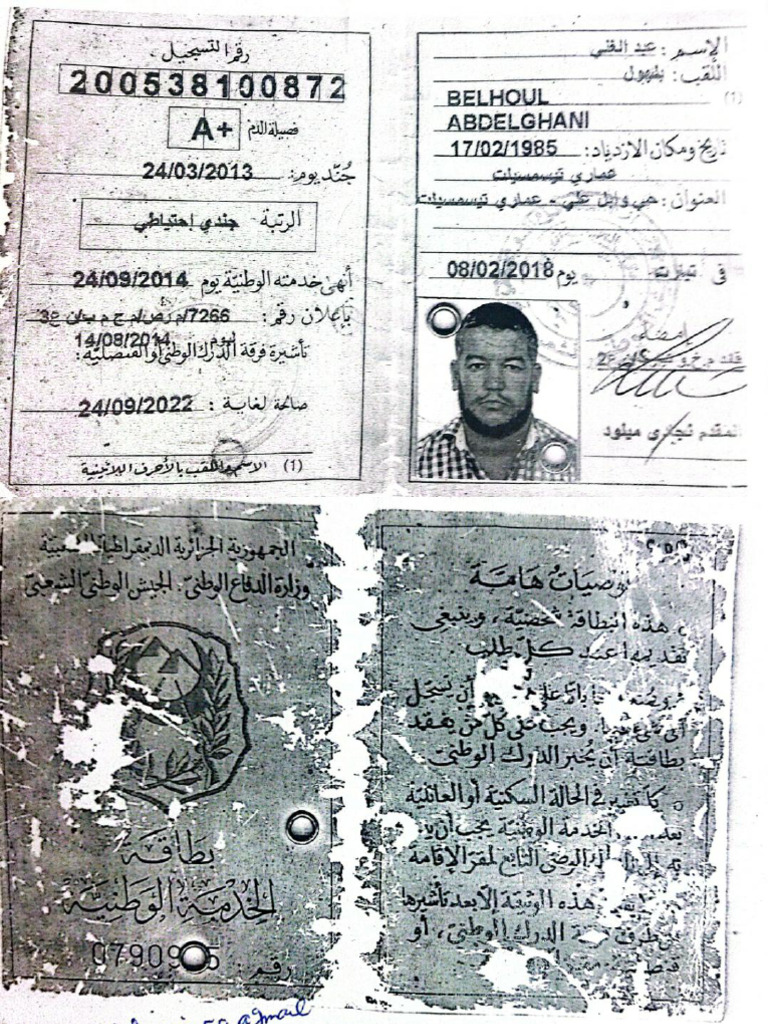 رقم التسجيل
200538100872
فصيلة الدم A+
جُنّد يوم: 24/03/2013
الرتبة: جندي إحتياطي
أنهى خدمته الوطنيّة يوم 24/09/2014
بإعلان رقم: 7266/
يوم 14/08/2014
تأشيرة فرقة الدّرك الوطني أو القنصليّة:
صالحة لغاية: 24/09/2022
(1) الاسم واللّقب بالأحرف اللاتينية
الإسم: عبد الغني
اللّقب: بلهول
BELHOUL (1)
ABDELGHANI
تاريخ ومكان الازدياد: 17/02/1985
عماري تيسمسيلت
العنوان: حي وابل علي - عماري تيسمسيلت
في تيارت يوم 08/02/2018
إمضاء:
المقدم نجاري ميلود
الجمهورية الجزائرية الديمقراطية الشعبية
وزارة الدفاع الوطني. الجيش الوطني الشعبي
بطاقة
الخدمة الوطنية
رقم: 07909
توصيات هامة
هذه البطاقة شخصيّة، وينبغي
تقديمها عند كلّ طلب
أن تسجّل
ويجب على كلّ من يفقد
بطاقته أن يُخبر الدرك الوطنيّ
كلّ تغيير في الحالة السكنيّة أو العائليّة
بعد الخدمة الوطنيّة يجب أن
التابع لمقرّ الإقامة
هذه الوثيقة إلّا بعد تأشيرها
من طرف الدرك الوطنيّ، أو
gmail